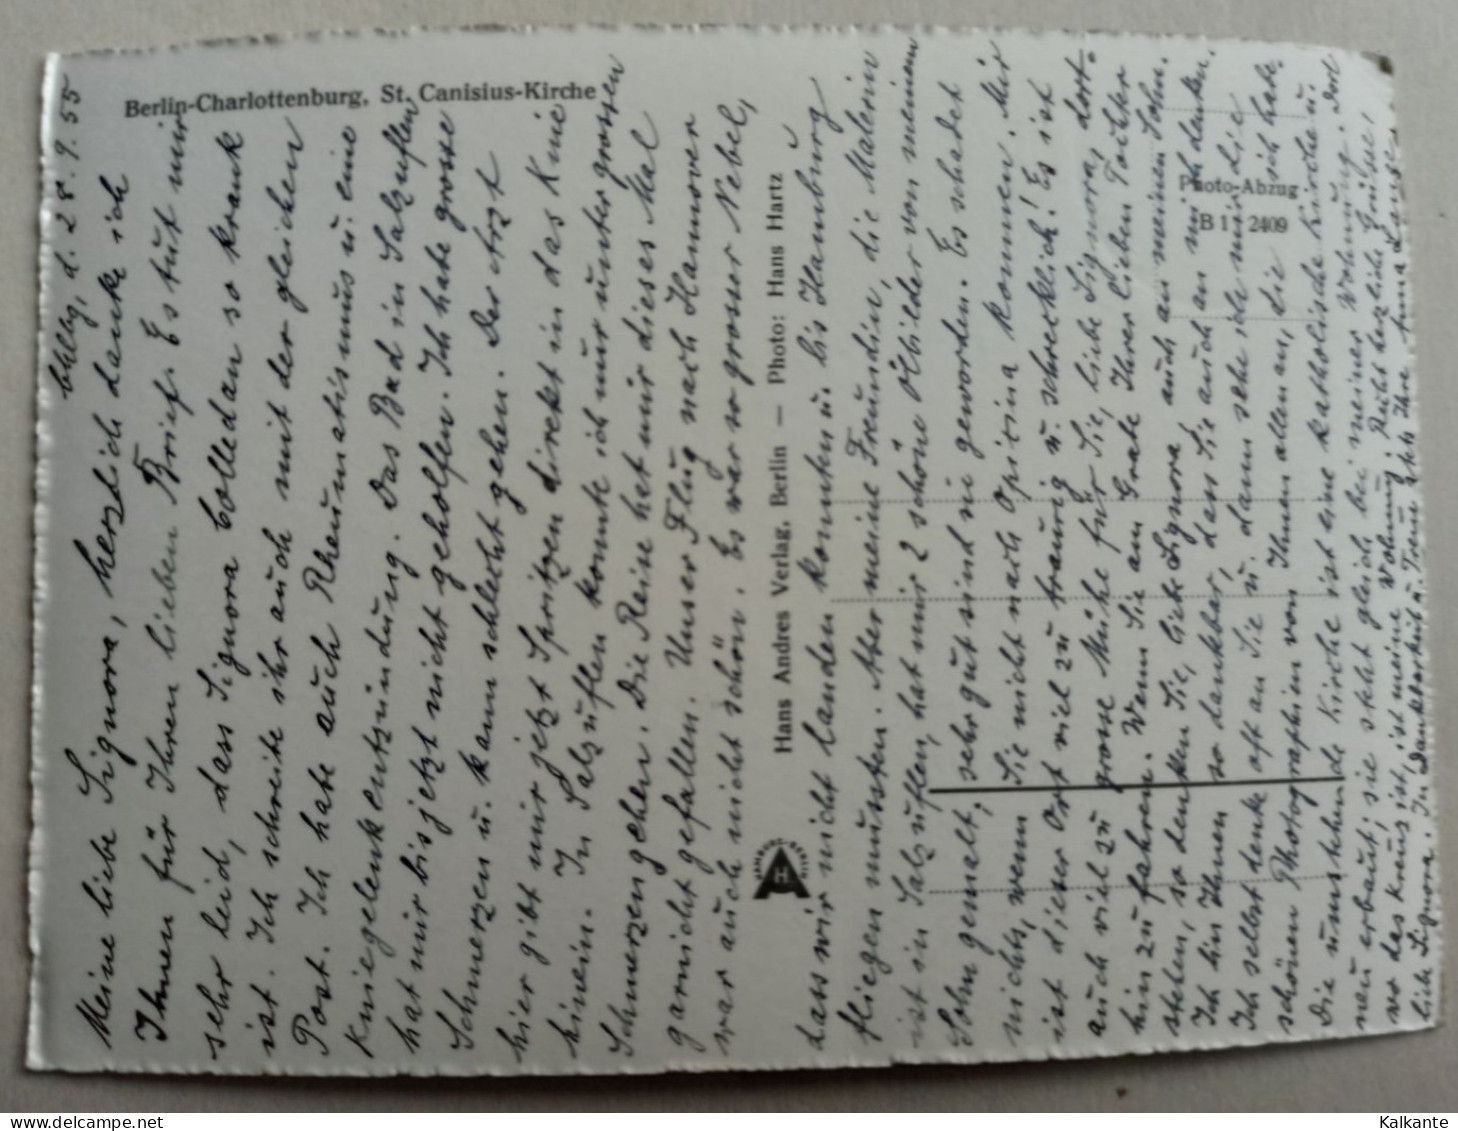 Berlin-Charlottenburg, St. Canisius-Kirche
d. 28. 9. 55
Meine liebe Signora, herzlich danke ich
Ihnen für Ihren lieben Brief. Es tut mir
sehr leid, dass Signora Colledan so krank
ist. Ich schreibe ihr auch mit der gleichen
Post. Ich habe auch Rheumatismus u. eine
Kniegelenkentzündung. Das Bad in Salzuflen
hat mir bis jetzt nicht geholfen. Ich habe grosse
Schmerzen u. kann schlecht gehen. Der Arzt
hier gibt mir jetzt Spritzen direkt in das Knie
hinein. In Salzuflen konnte ich nur unter grossen
Schmerzen gehen. Die Reise hat mir dieses Mal
garnicht gefallen. Unser Flug nach Hannover
war auch nicht schön. Es war so grosser Nebel,
Hans Andres Verlag, Berlin — Photo: Hans Hartz
HAMBURG-BERLIN
H A
dass wir nicht landen konnten u. bis Hamburg
fliegen mussten. Aber meine Freundin, die Malerin
ist in Salzuflen, hat mir 2 schöne Ölbilder von meinem
Sohn gemalt, sehr gut sind sie geworden. Es schadet
nichts, wenn Sie nicht nach Opicina kommen. Mir
ist dieser Ort viel zu traurig u. schrecklich! Es ist
auch viel zu grosse Mühe für Sie, liebe Signora, dort-
hin zu fahren. Wenn Sie am Grabe Ihrer lieben Tochter
stehen, so denken Sie, liebe Signora auch an meinen Sohn.
Ich bin Ihnen so dankbar, dass Sie auch an mich denken.
Ich selbst denke oft an Sie u. dann sehe ich mir die
schönen Photographien von Ihnen allen an, die ich habe.
Die umstehende Kirche ist eine katholische Kirche u.
neu erbaut; sie steht gleich bei meiner Wohnung. Dort
wo das Kreuz ist, ist meine Wohnung. Recht herzliche Grüsse,
liebe Signora. In Dankbarkeit u. Treue stets Ihre Anna
Photo-Abzug
B 11 2409